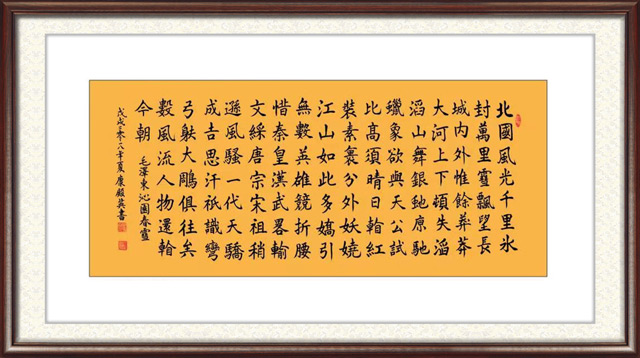 北國風光千里氷
封萬里雪飄望長
城内外惟餘莽莽
大河上下頓失滔
滔山舞銀虵原馳
蠟象欲與天公試
比高須晴日㸔紅
裝素裹分外妖嬈
江山如此多嬌引
無數英雄競折腰
惜秦皇漢武畧輸
文綵唐宗宋祖稍
遜風騷一代天驕
成吉思汗祇識彎
弓射大鵰俱往矣
數風流人物還㸔
今朝 毛澤東沁園春雪
戊戌年夏康殿英書